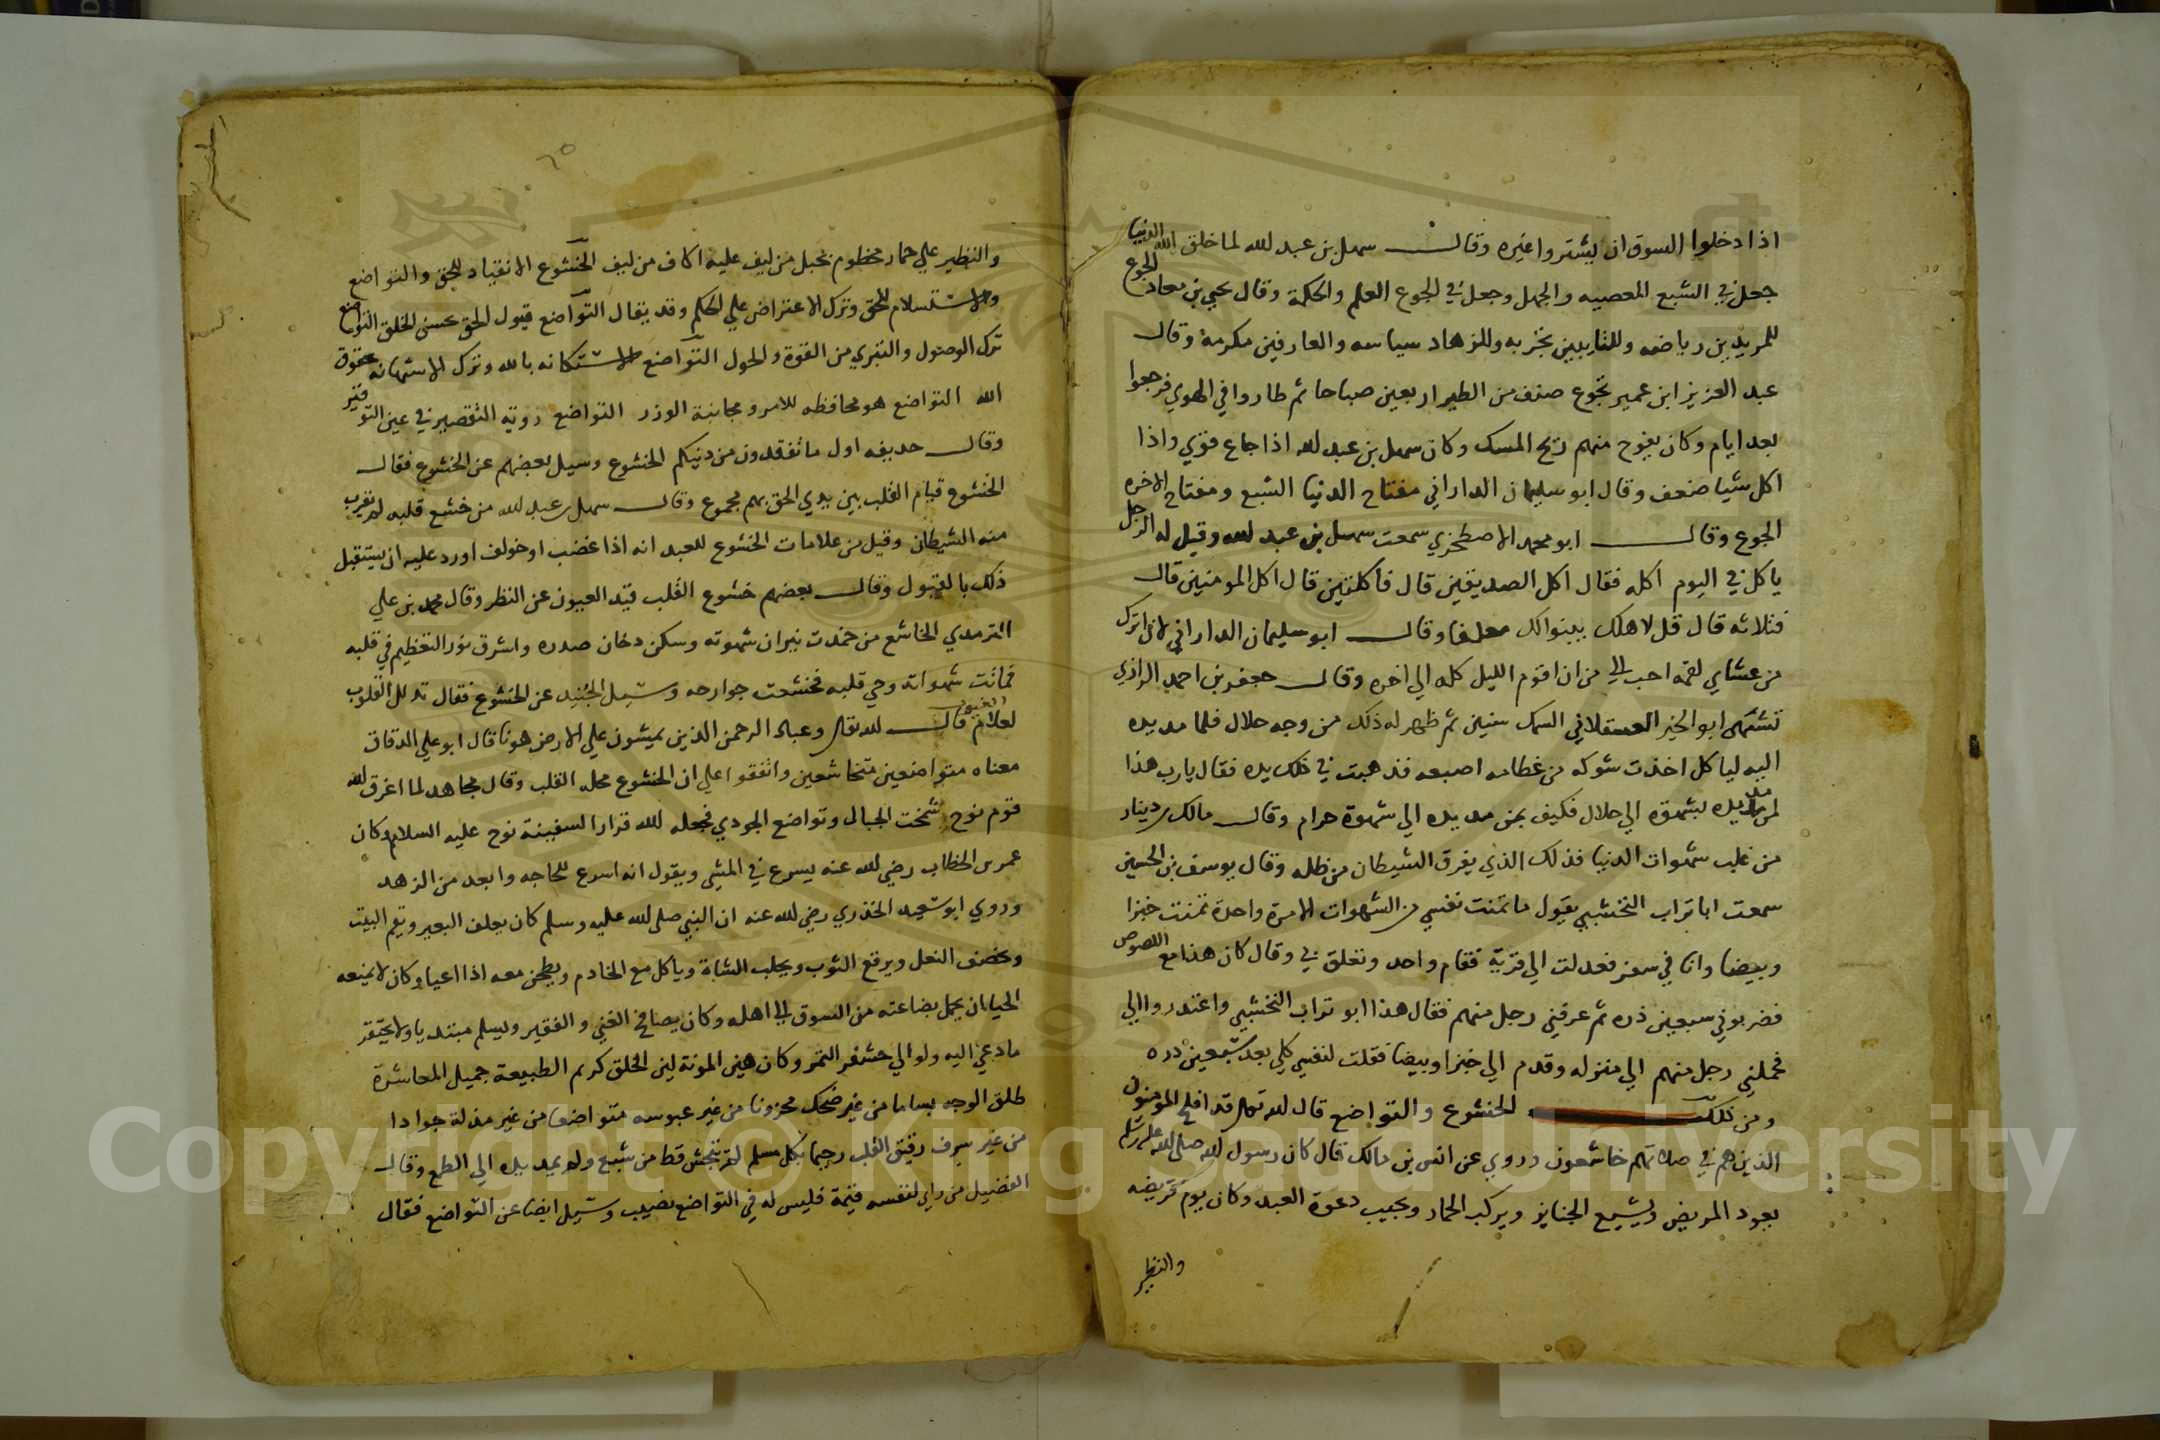 اذا دخلوا السوق ان يشتروا غيره وقال سهل بن عبد لله لما خلق الله الدنيا
جعل في الشبع المعصيه والجهل وجعل في الجوع العلم والحكمة وقال يحيي بن معاد الجوع
للمريدين رياضه وللتايبين تجربه وللزهاد سياسه والعارفين مكرمة وقال
عبد العزيز ابن عمير تجوع صنف من الطير اربعين صباحا ثم طاروا في الهوي فرجعوا
بعد ايام وكان يفوح منهم ريح المسك وكان سهل بن عبد لله اذا جاع قوي واذا
اكل شيا ضعف وقال ابو سليمان الداراني مفتاح الدنيا الشبع ومفتاح الاخره
الجوع وقال ابو محمد الاصطخري سمعت سهل بن عبد لله وقيل له الرجل
ياكل في اليوم اكله فقال اكل الصديقين قال فاكلتين قال اكل المومنين قال
فثلاثه قال قل لاهلك يبنوا لك معلفا وقال ابو سليمان الداراني لان اترك
من عشاي لقمه احب الي من ان اقوم الليل كله الي اخره وقال جعفر بن احمد الرازي
تشتهي ابو الخير العسقلاني السمك سنين ثم ظهر له ذلك من وجه حلال فلما مد يده
اليه لياكل اخذت شوكه من عظامه اصبعه فذهبت في ذلك يده فقال يارب هذا
لمن مد يده بشهوه الي حلال فكيف بمن مد يده الي شهوة حرام وقال مالك بن دينار
من غلب شهوات الدنيا فذلك الذي يفرق الشيطان من ظله وقال يوسف بن الحسين
سمعت ابا تراب النخشبي يقول ما تمنت نفسي من الشهوات الا مرة واحدة تمنت خبزا
وبيضا وانا في سفر فعدلت الي قرية فقام واحد وتعلق بي وقال كان هذا مع اللصوص
فضربوني سبعين دره ثم عرفني رجل منهم فقال هذا ابو تراب النخشبي واعتذروا الي
فحملني رجل منهم الي منزله وقدم الي خبزا وبيضا فقلت لنفسي كلي بعد سبعين دره
ومن ذلك الخشوع والتواضع قال لله تعالى قد افلح المومنون
الذين هم في صلاتهم خاشعون وروي عن انس بن مالك قال كان رسول لله صلى لله عليه وسلم
يعود المريض ويشيع الجنايز ويركب الحمار ويجيب دعوة العبد وكان يوم قريضه
والنظير
والنظير علي حمار مخطوم بحبل من ليف عليه اكاف من ليف الخشوع الانقياد للحق والتواضع
والاستسلام للحق وترك الاعتراض علي الحكم وقد يقال التواضع قبول الحق بحسن الخلق التواضع
ترك الوصول والتبري من القوة والحول التواضع الاستكانه بالله وترك الاستهانه بحقوق
الله التواضع هو محافظه للامر ومجانبة الوزر التواضع روية التقصير في عين التوقير
وقال حديفه اول ما تفقدون من دنيكم الخشوع وسيل بعضهم عن الخشوع فقال
الخشوع قيام القلب بين يدي الحق بهم مجموع وقال سهل بن عبد لله من خشع قلبه لم يقرب
منه الشيطان وقيل من علامات الخشوع للعبد انه اذا غضب او خولف اورد عليه ان يستقبل
ذلك بالقبول وقال بعضهم خشوع القلب قيد العيون عن النظر وقال محمد بن علي
الترمدي الخاشع من خمدت نيران شهوته وسكن دخان صدره واشرق نور التعظيم في قلبه
فماتت شهواته وحي قلبه فخشعت جوارحه وسيل الجنيد عن الخشوع فقال تدلل القلوب
لعلام الغيوب قال لله تعالى وعباد الرحمن الذين يمشون علي الارض هونا قال ابو علي الدقاق
معناه متواضعين متخاشعين واتفقوا علي ان الخشوع محله القلب وقال مجاهد لما اغرق لله
قوم نوح شمخت الجبال وتواضع الجودي فجعله لله قرارا لسفينة نوح عليه السلام وكان
عمر بن الخطاب رضي لله عنه يسرع في المشي ويقول انه اسرع للحاجه وابعد من الزهد
وروي ابو سعيد الخذري رضي لله عنه ان النبي صلى لله عليه وسلم كان يعلف البعير ويقم البيت
ويخصف النعل ويرقع الثوب ويحلب الشاة وياكل مع الخادم ويطحن معه اذا اعيا وكان لا يمنعه
الحيا ان يحمل بضاعته من السوق الي اهله وكان يصافح الغني والفقير ويسلم مبتديا ولا يحتقر
ما دعي اليه ولو الي حشف التمر وكان هين المونة لين الخلق كريم الطبيعة جميل المعاشرة
طلق الوجه بساما من غير ضحك محزونا من غير عبوسه متواضعا من غير مذلة جوادا
من غير سرف رقيق القلب رحيما بكل مسلم لم يتجش قط من شبع ولم يمد يده الي الطمع وقال
الفضيل من راي لنفسه قيمة فليس له في التواضع نصيب وسيل ايضا عن التواضع فقال
Copyright © King Saud University